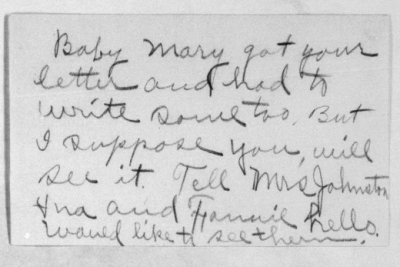 Baby Mary got your
letter and had to
write some too. But
I suppose you, will
see it. Tell Mrs Johnston
Ina and Fannie hello.
Would like to see them.